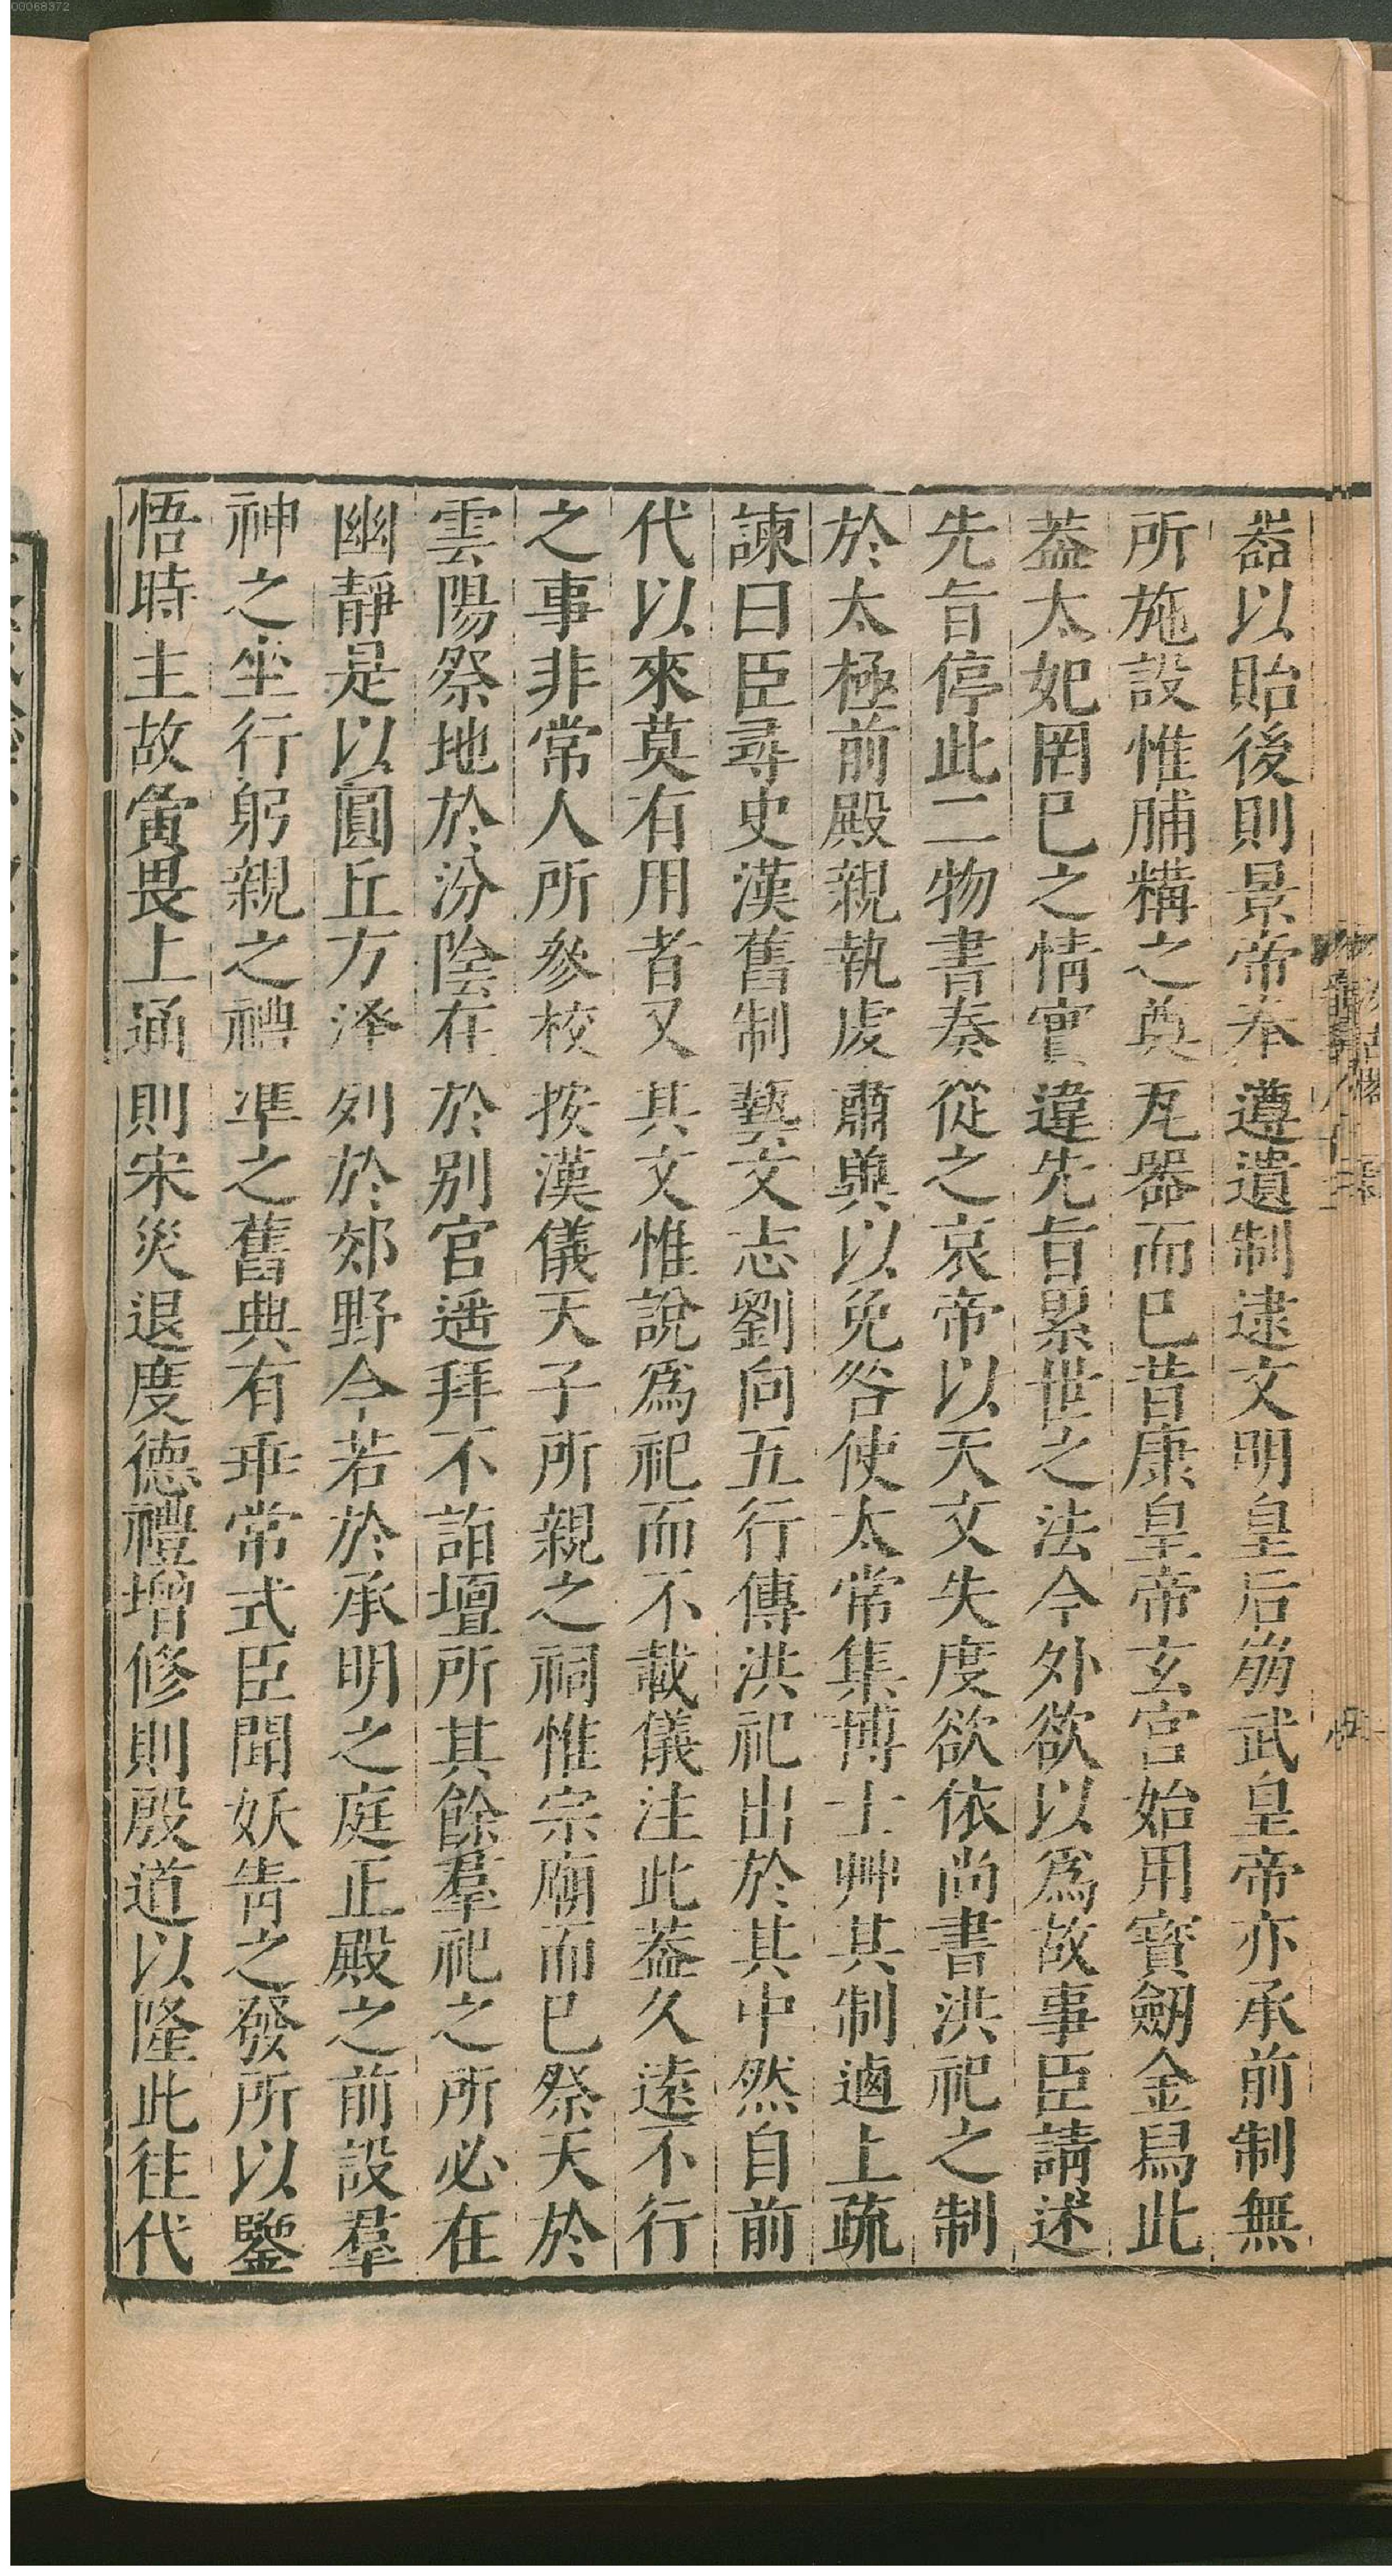 器以貽後則景帝奉遵遺制逮文明皇后崩武皇帝亦承前制無
所施設惟脯糒之奠瓦器而已昔康皇帝玄宮始用寶劒金舃此
葢太妃罔已之情實違先旨累世之法今外欲以爲故事臣請述
先旨停此二物書奏從之哀帝以天文失度欲依尚書洪祀之制
於太極前殿親執虔肅兾以免咎使太常集博士艸其制逌上疏
諫曰臣尋史漢舊制藝文志劉向五行傳洪祀出於其中然自前
代以來莫有用者又其文惟說爲祀而不載儀注此葢久遠不行
之事非常人所參校按漢儀天子所親之祠惟宗廟而已祭天於
雲陽祭地於汾陰在於别宮遥拜不詣壇所其餘羣祀之所必在
幽靜是以圓丘方泽列於郊野今若於承明之庭正殿之前設羣
神之坐行躬親之禮凖之舊典有乖常式臣聞妖眚之發所以鑒
悟時主故寅畏上通則宋災退度德禮增修則殷道以隆此徃代
00068372